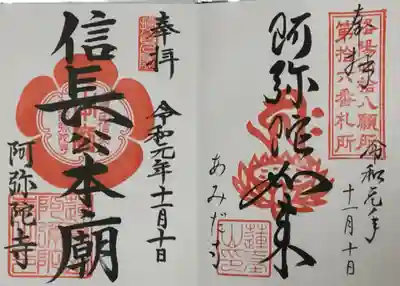 奉拝
令和元年十一月十日
信長公本廟
阿弥陀寺
洛陽四十八願所
第拾六番札所
奉拝
令和元年
十一月十日
阿弥陀如来
あみだ寺
蓮臺山